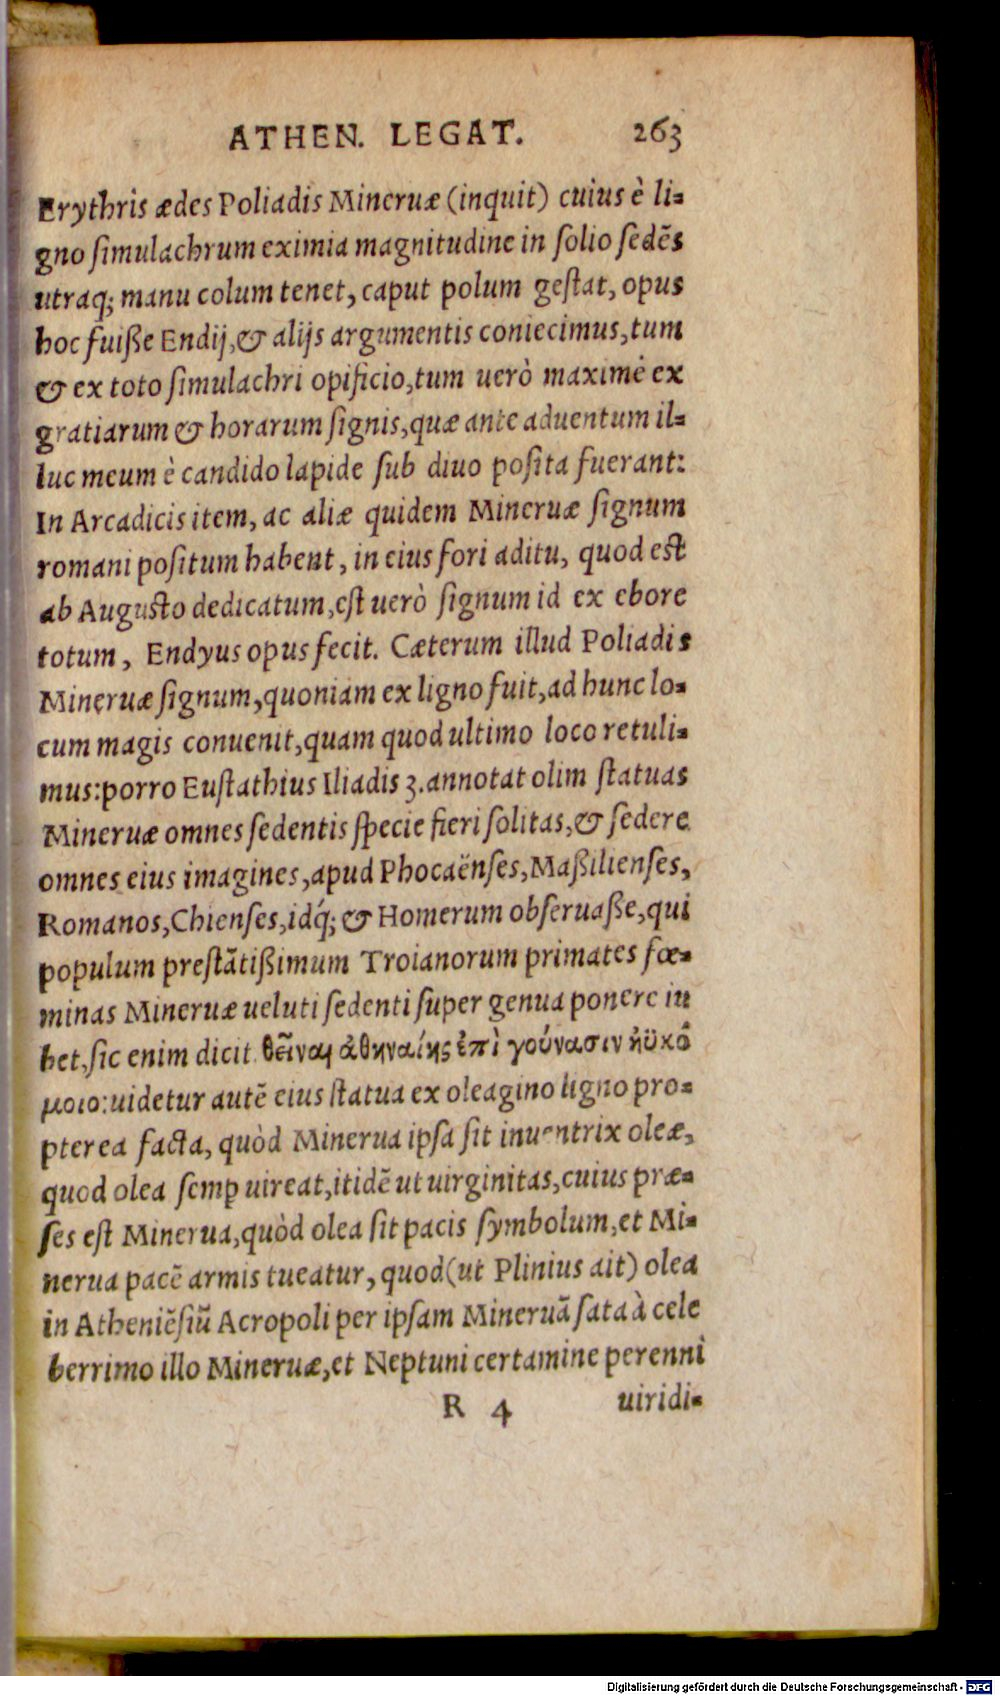 ATHEN. LEGAT. 263
Erythris ædes Poliadis Mineruæ (inquit) cuius è li-
gno ſimulachrum eximia magnitudine in ſolio ſedẽs
utraq; manu colum tenet, caput polum geſtat, opus
hoc fuiße Endij, & alijs argumentis coniecimus, tum
& ex toto ſimulachri opificio, tum uerò maximè ex
gratiarum & horarum ſignis, quæ ante aduentum il-
luc meum è candido lapide ſub diuo poſita fuerant:
In Arcadicis item, ac aliæ quidem Mineruæ ſignum
romani poſitum habent, in eius fori aditu, quod eſt
ab Auguſto dedicatum, eſt uerò ſignum id ex ebore
totum, Endyus opus fecit. Cæterum illud Poliadis
Mineruæ ſignum, quoniam ex ligno fuit, ad hunc lo-
cum magis conuenit, quam quod ultimo loco retuli-
mus: porro Euſtathius Iliadis 3. annotat olim ſtatuas
Mineruæ omnes ſedentis ſpecie fieri ſolitas, & ſedere
omnes eius imagines, apud Phocaënſes, Maßilienſes,
Romanos, Chienſes, idq́; & Homerum obſeruaße, qui
populum preſtãtißimum Troianorum primates fœ-
minas Mineruæ ueluti ſedenti ſuper genua ponere iu
bet, ſic enim dicit θεῖναι ἀθηναίης ἐπὶ γούνασιν ἠϋκό
μοιο: uidetur autẽ eius ſtatua ex oleagino ligno pro-
pterea facta, quòd Minerua ipſa ſit inuentrix oleæ,
quod olea ſemꝑ uireat, itidẽ ut uirginitas, cuius præ-
ſes eſt Minerua, quòd olea ſit pacis ſymbolum, et Mi-
nerua pacẽ armis tueatur, quod (ut Plinius ait) olea
in Atheniẽſiũ Acropoli per ipſam Mineruã ſata à cele
berrimo illo Mineruæ, et Neptuni certamine perenni
R 4 uiridi-
Digitalisierung gefördert durch die Deutsche Forschungsgemeinschaft - DFG